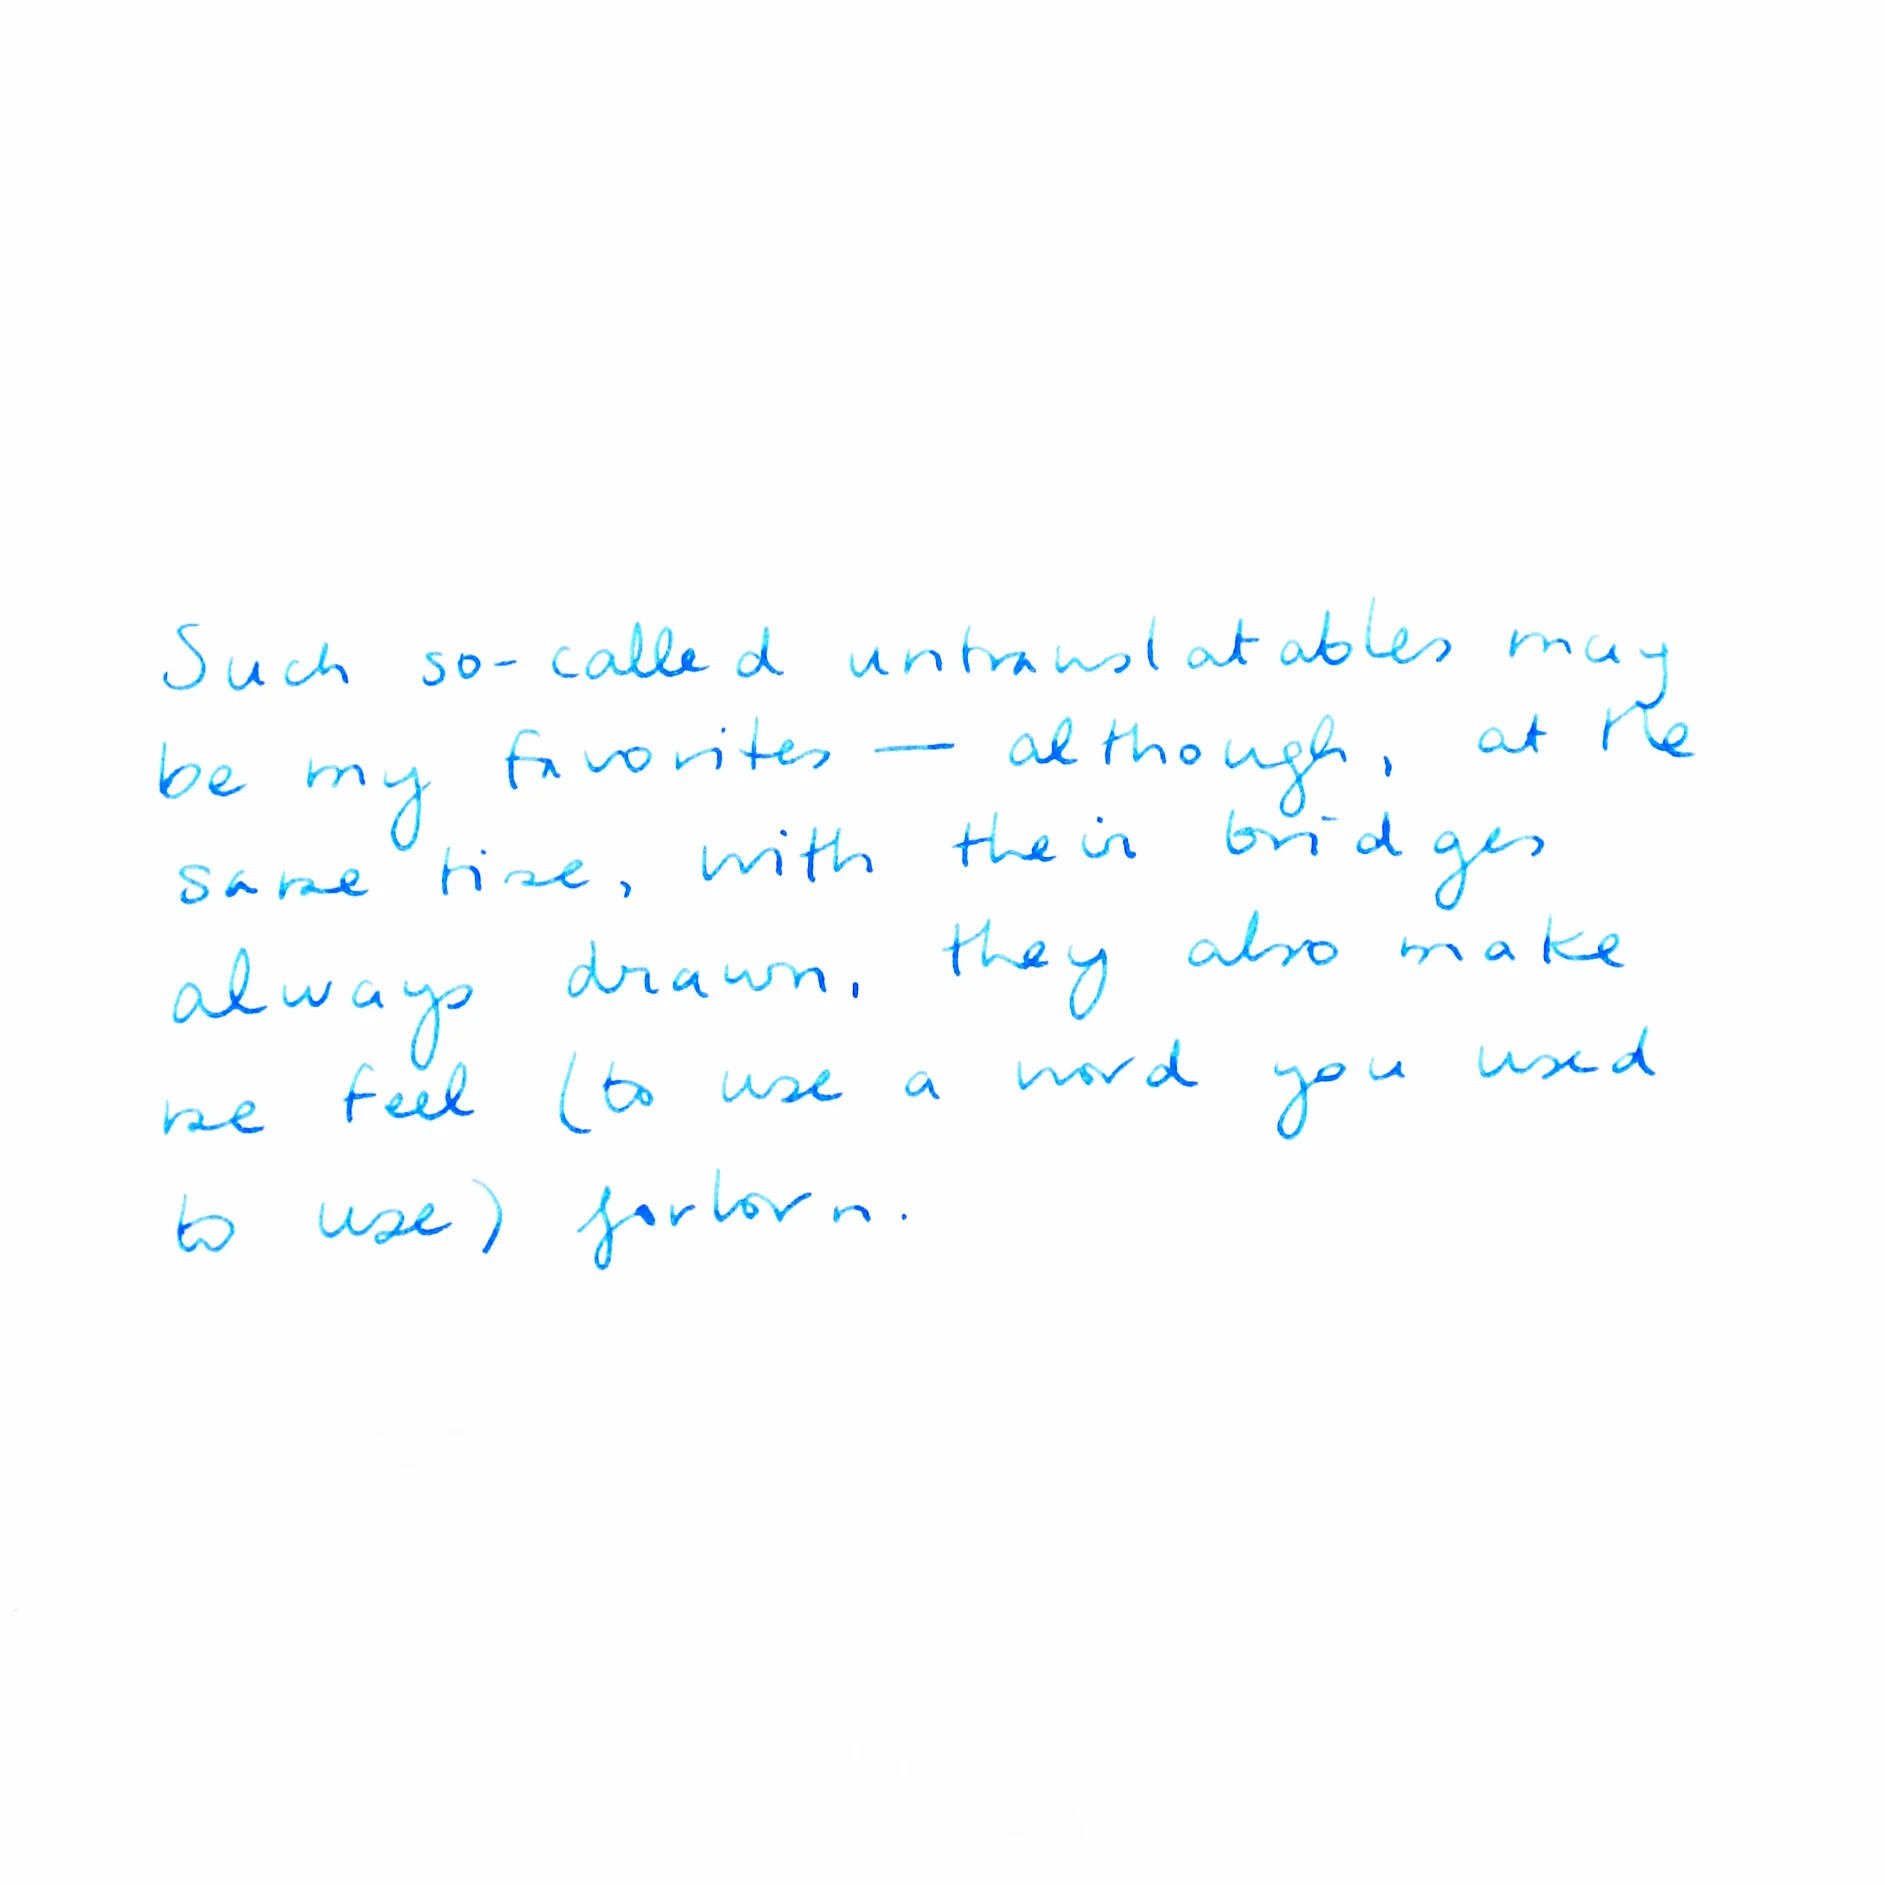 Such so-called untranslatables may
be my favorites — although, at the
same time, with their bridges
always drawn, they also make
me feel (to use a word you used
to use) forlorn.